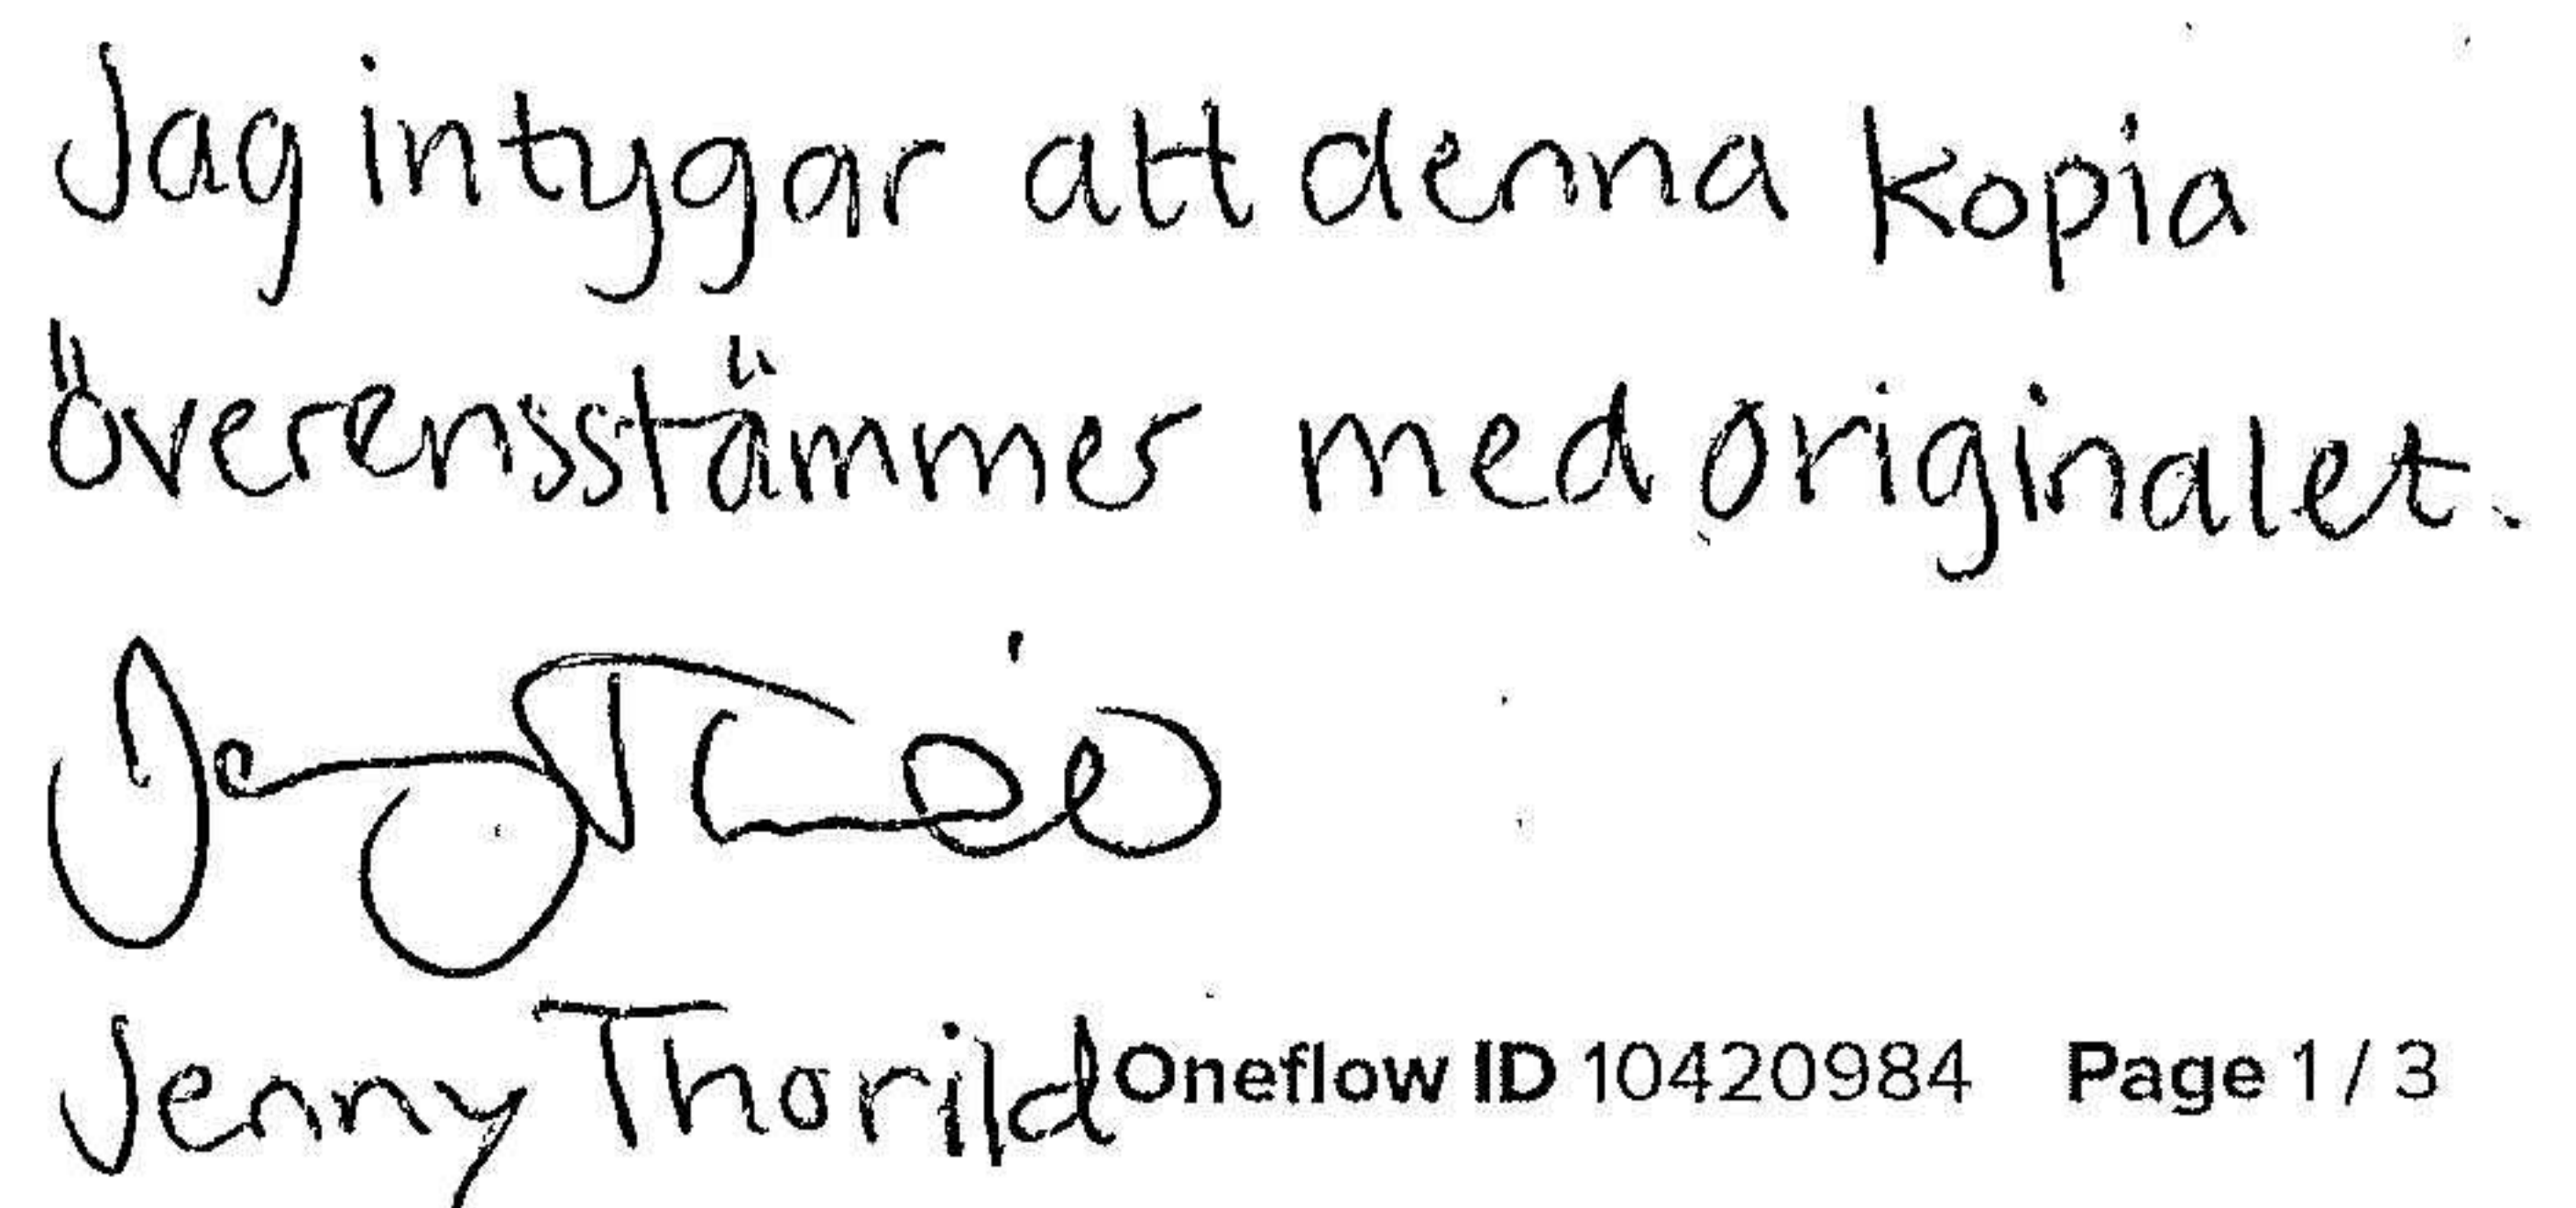 Jag intygar att denna kopia
överensstämmer med originalet.
Jenny Thorild
Jenny Thorild Oneflow ID 10420984 Page 1 / 3